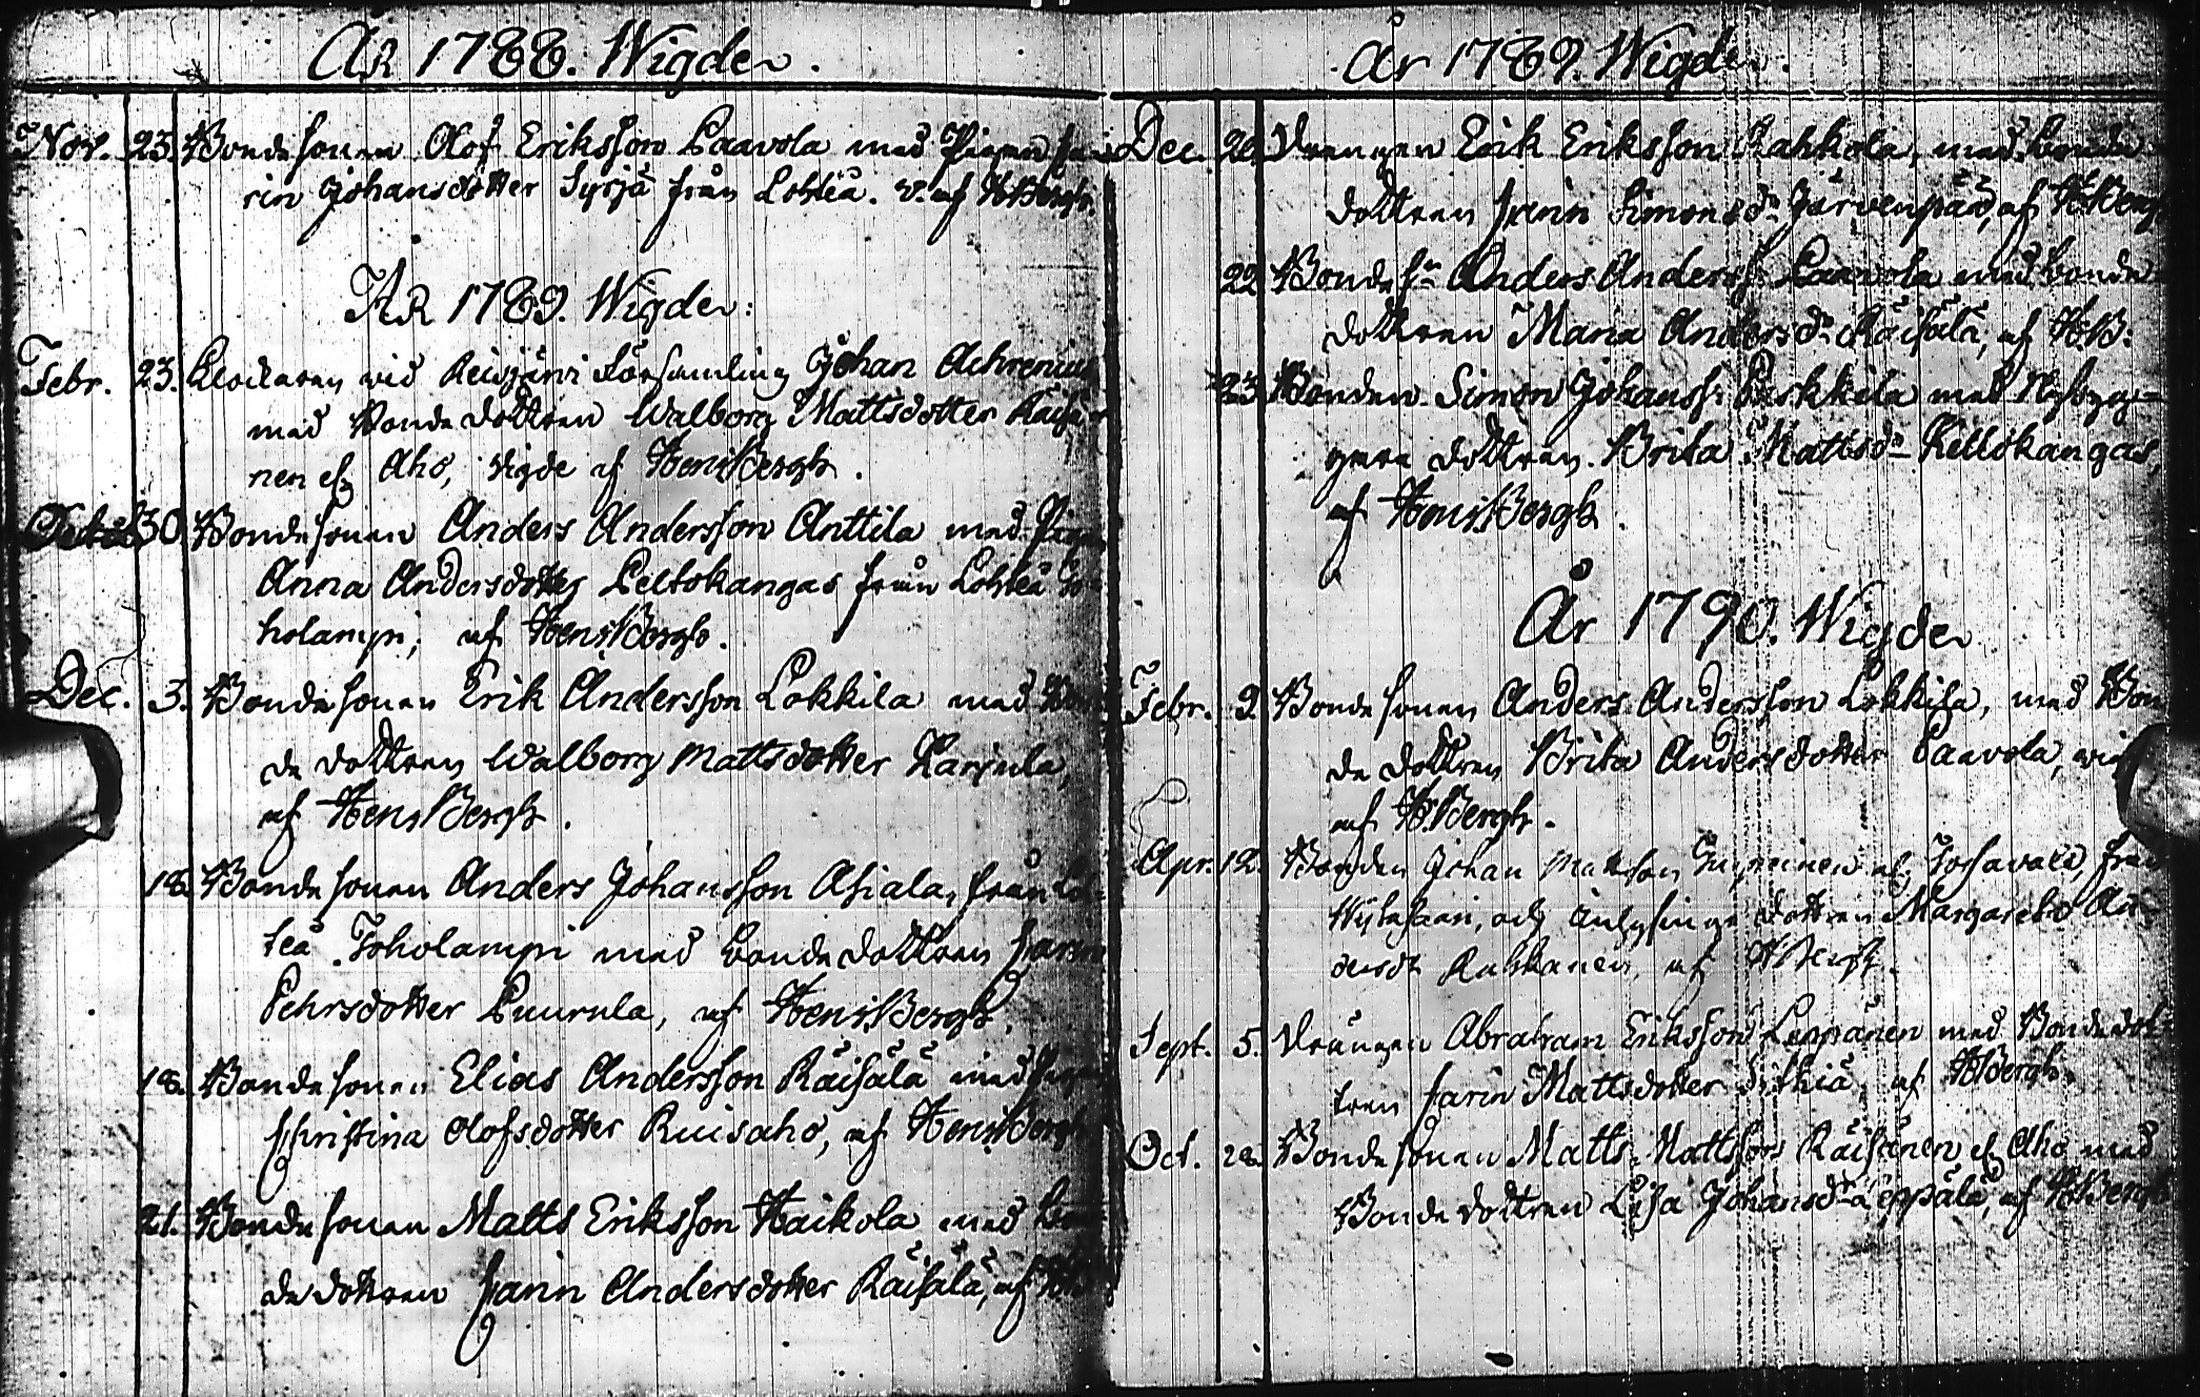 År 1788. Wigde.
Nov. 23. Bondesonen Olof Eriksson Paavola med Pigan
rin Johansdotter Syrjä från Lohteå. v. af HBergh.
ÅR 1789. Wigde:
Febr. 23. Clockaren wid Reisjärvi Församling Johan Achrenius
med Bonde dottren Walborg Mattsdotter Räisä
nen el. Aho, vigde af Hens Bergh.
30 Bondesonen Anders Andersson Anttila med Pigan
Anna Andersdotter Peltokangas från Lohteå To
holampi; af Hens Bergh.
Dec. 3. Bondesonen Erik Andersson Lokkila med Bon
de dottren Walborg Mattsdotter Karjula,
af Hens Bergh.
18. Bondesonen Anders Johansson Asiala, från Lo
teå Toholampi med bondedottren Carin
Pehrsdotter Puurula, af Hens Bergh.
18. Bondesonen Elias Andersson Räisälä med Pigan
Christina Olofsdotter Ruisaho, af Hens Bergh
21. Bondesonen Matts Eriksson Haikola med bon
dedottren Carin Andersdotter Räisälä, af
År 1789. Wigde.
Dec. Drengen Erik Eriksson Kahkola, med bonde
dottren Carin Simonsdr Järvenpää, af HBergh
22 Bondesn Anders Anderss. Paavola med bonde
dottren Maria Andersdr Räisälä, af H.B.
23 Bonden Simon Johanss. med Nybyg=
gare dottren Brita Mattsdr Kellokangas,
af Hens Bergh.
År 1790. Wigde
Febr. 9. Bondesonen Anders Andersson Lokkila, med Bon
de dottren Brita Andersdotter Paavola,
af H.Bergh.
Apr. 12. Bonden Johan Mattson från
och dottren Margareta An
dersdr af HBergh.
Sept. 5. Drängen Abraham Eriksson Leppänen med Bondedot=
tren Carin Mattsdotter af HBergh.
Oct. 28. Bondesonen Matts Mattsson Räisänen el. Aho med
Bondedottren Lisa Johansdr Leppälä, af HBergh